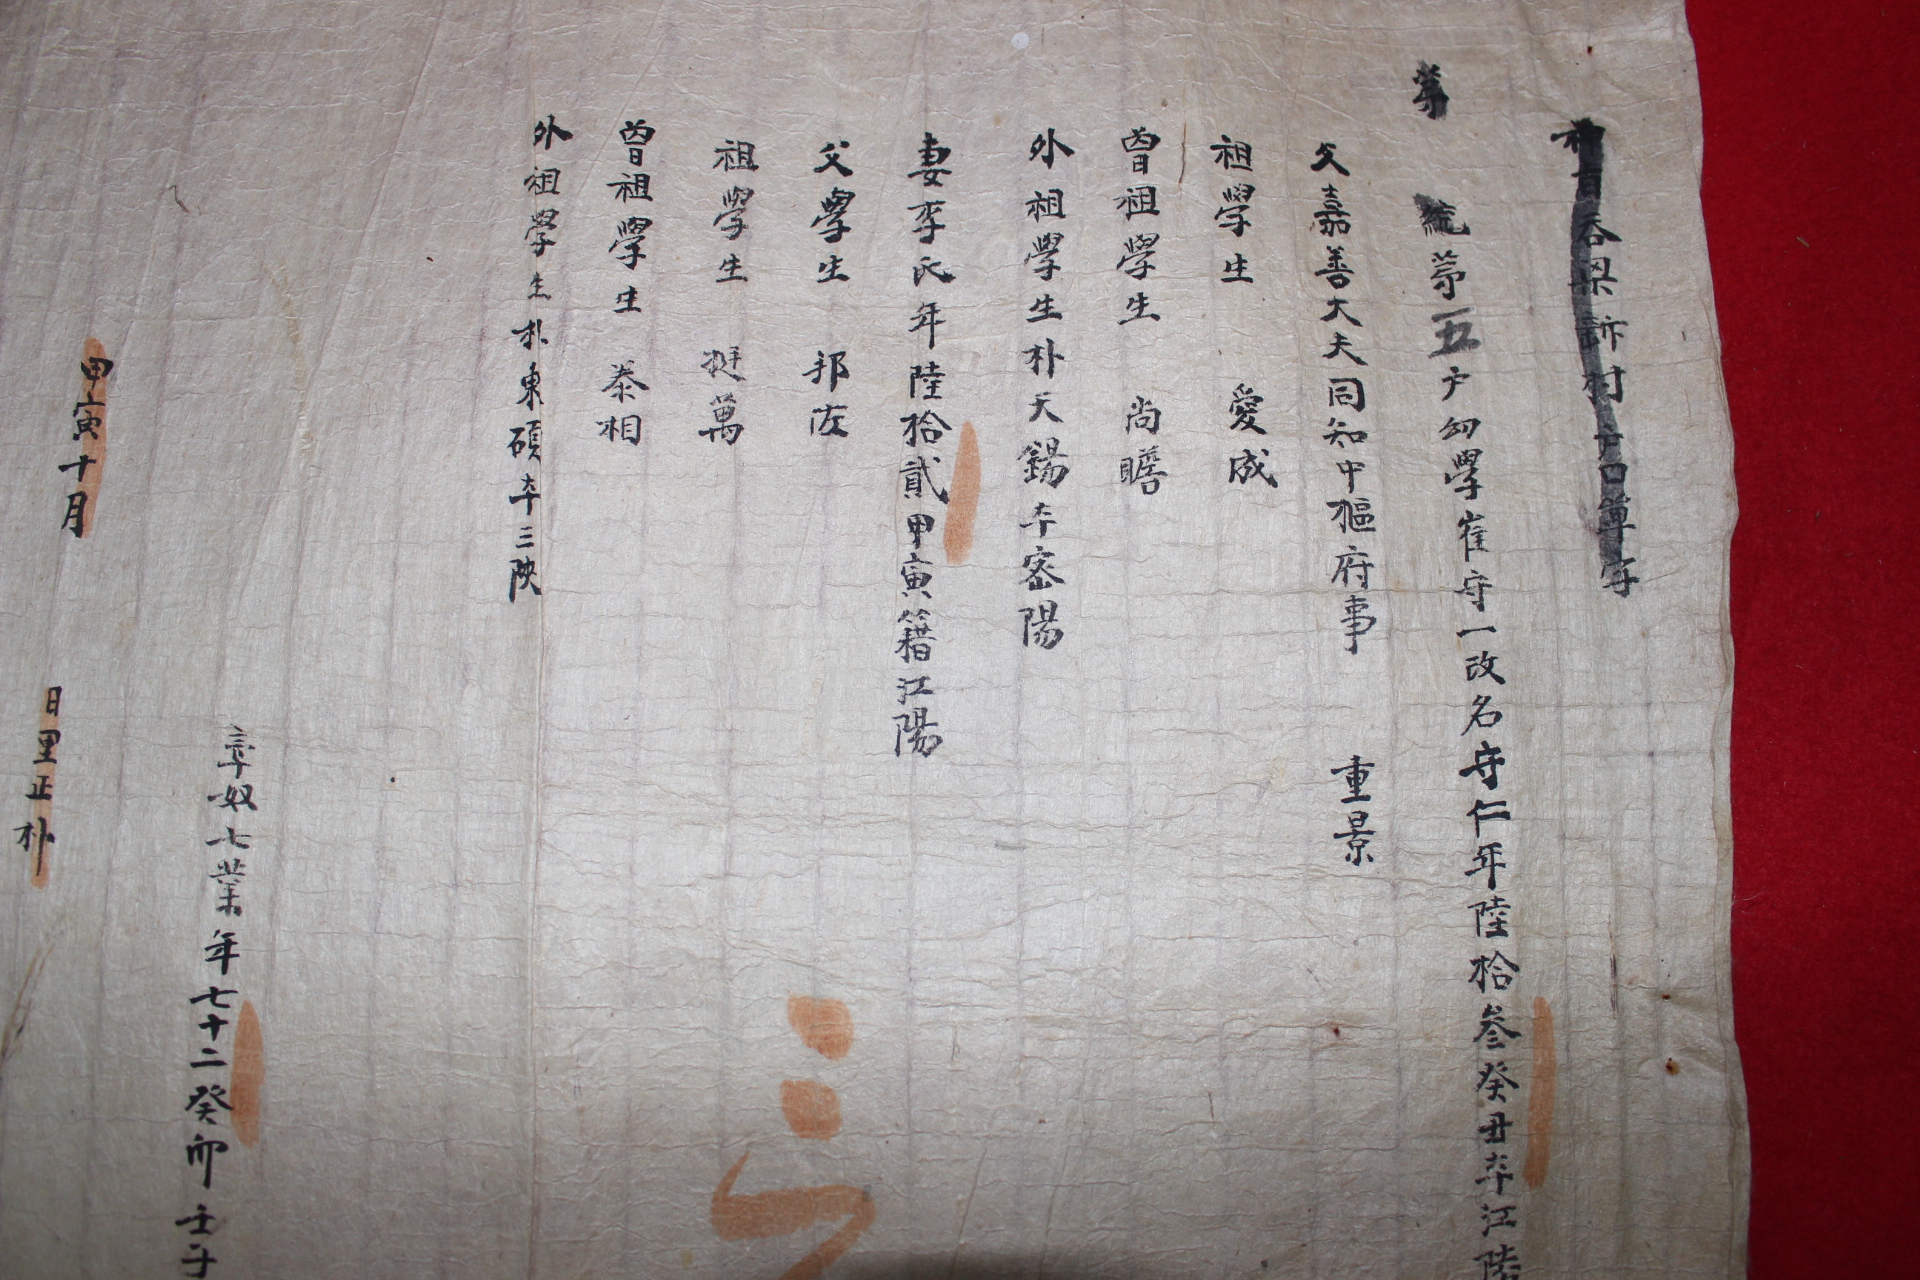 吞 村 戶口單字
第 統第五戶幼學崔守一改名守仁年陸拾叁癸丑本江陵
父嘉善大夫同知中樞府事 重景
祖學生 愛成
曾祖學生 尚瞻
外祖學生朴天錫本密陽
妻李氏年陸拾貳甲寅籍江陽
父學生 邦
祖學生 挺萬
曾祖學生 泰相
外祖學生朴東碩本三陟
率奴七業年七十二癸卯 壬子
甲寅十月 日里正朴